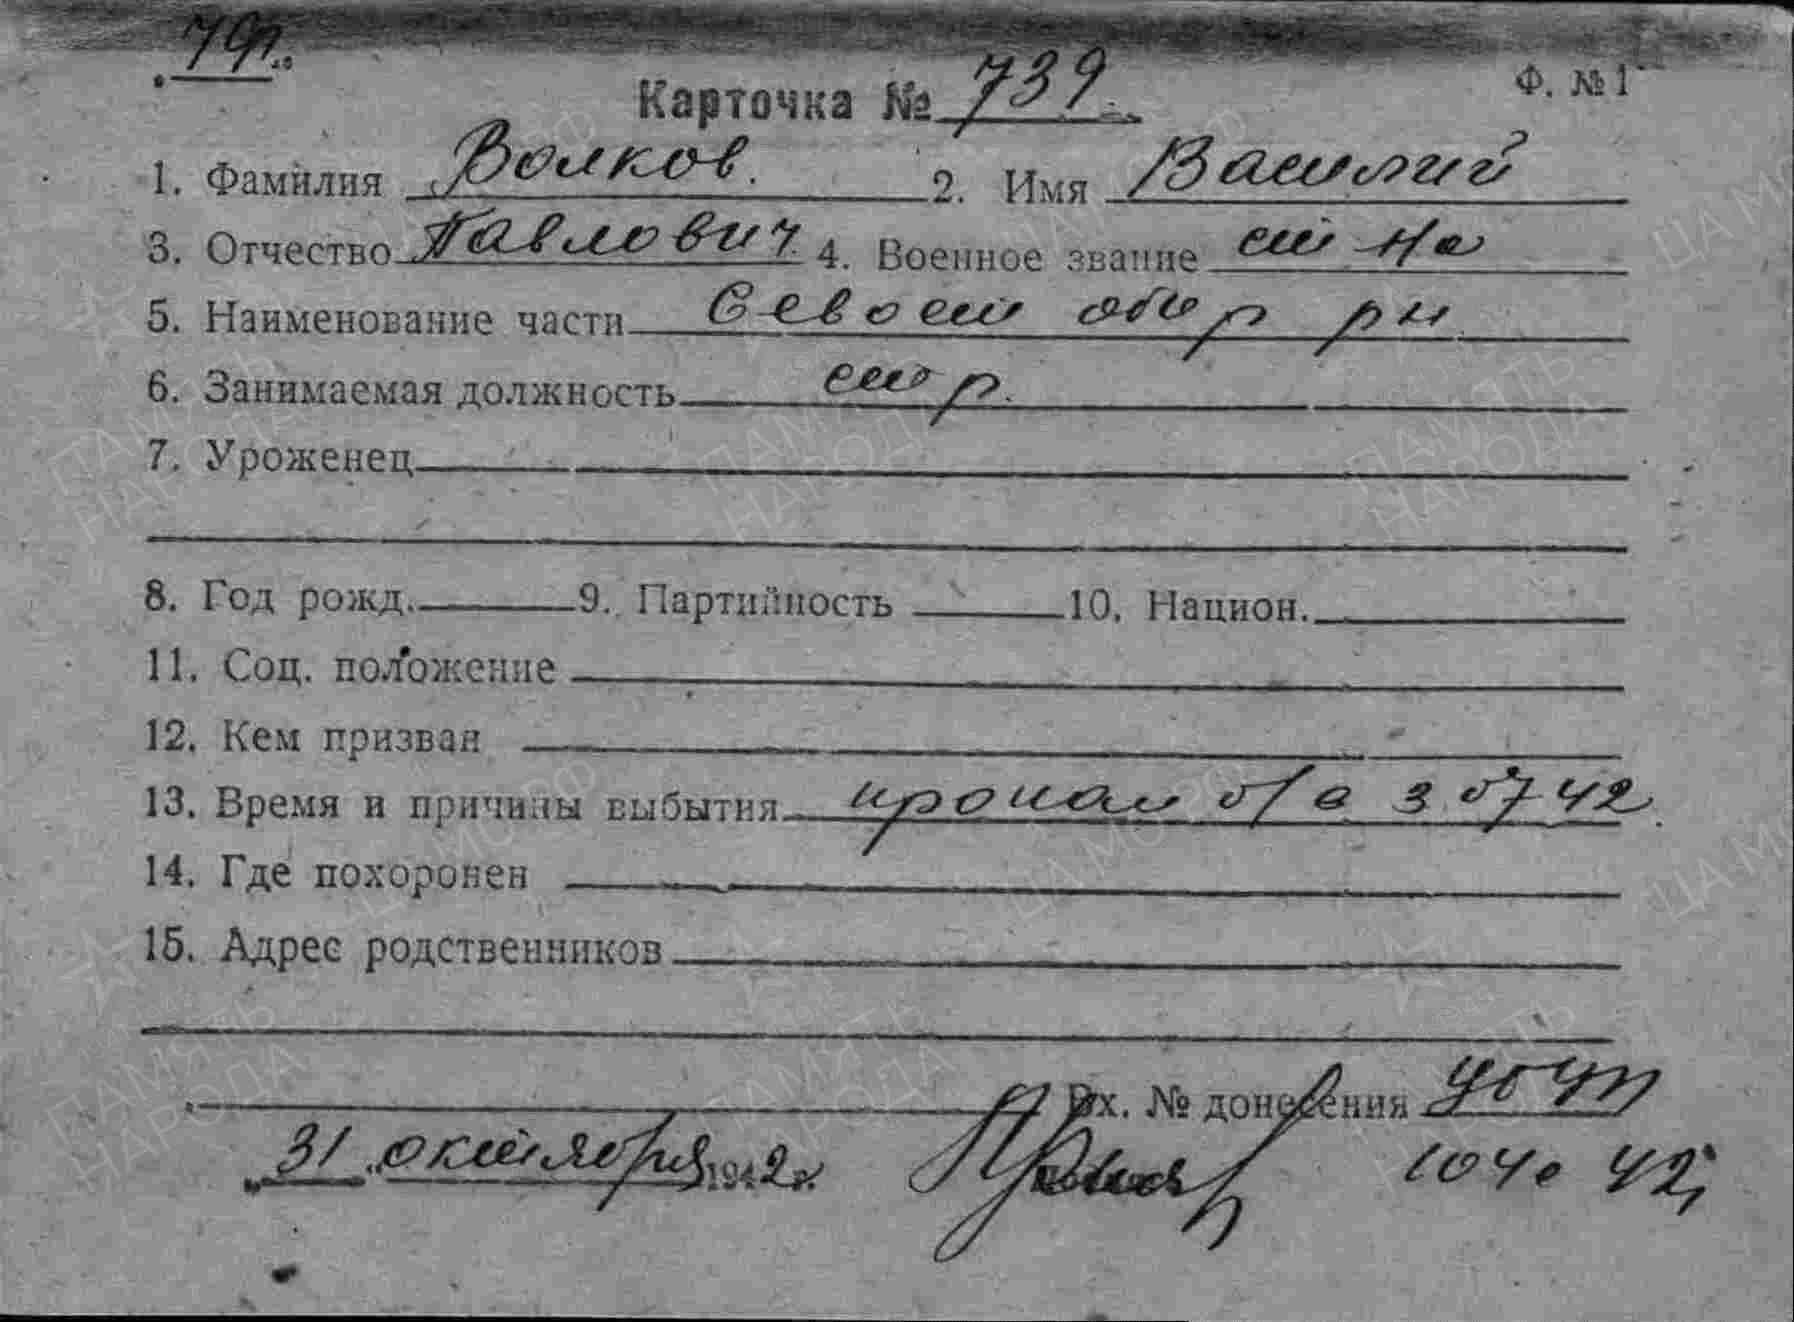 Карточка № 739 Ф. №1
1. Фамилия Волков. 2. Имя Василий
3. Отчество Павлович. 4. Военное звание ст на
5. Наименование части Севост обор рн
6. Занимаемая должность стр.
7. Уроженец
8. Год рожд. 9. Партийность 10. Национ.
11. Соц. положение
12. Кем призван
13. Время и причины выбытия пропал б/в 3 07 42.
14. Где похоронен
15. Адрес родственников
Вх. № донесения
31 октября 1942 г.
ПАМЯТЬ НАРОДА
ЦА МО РФ